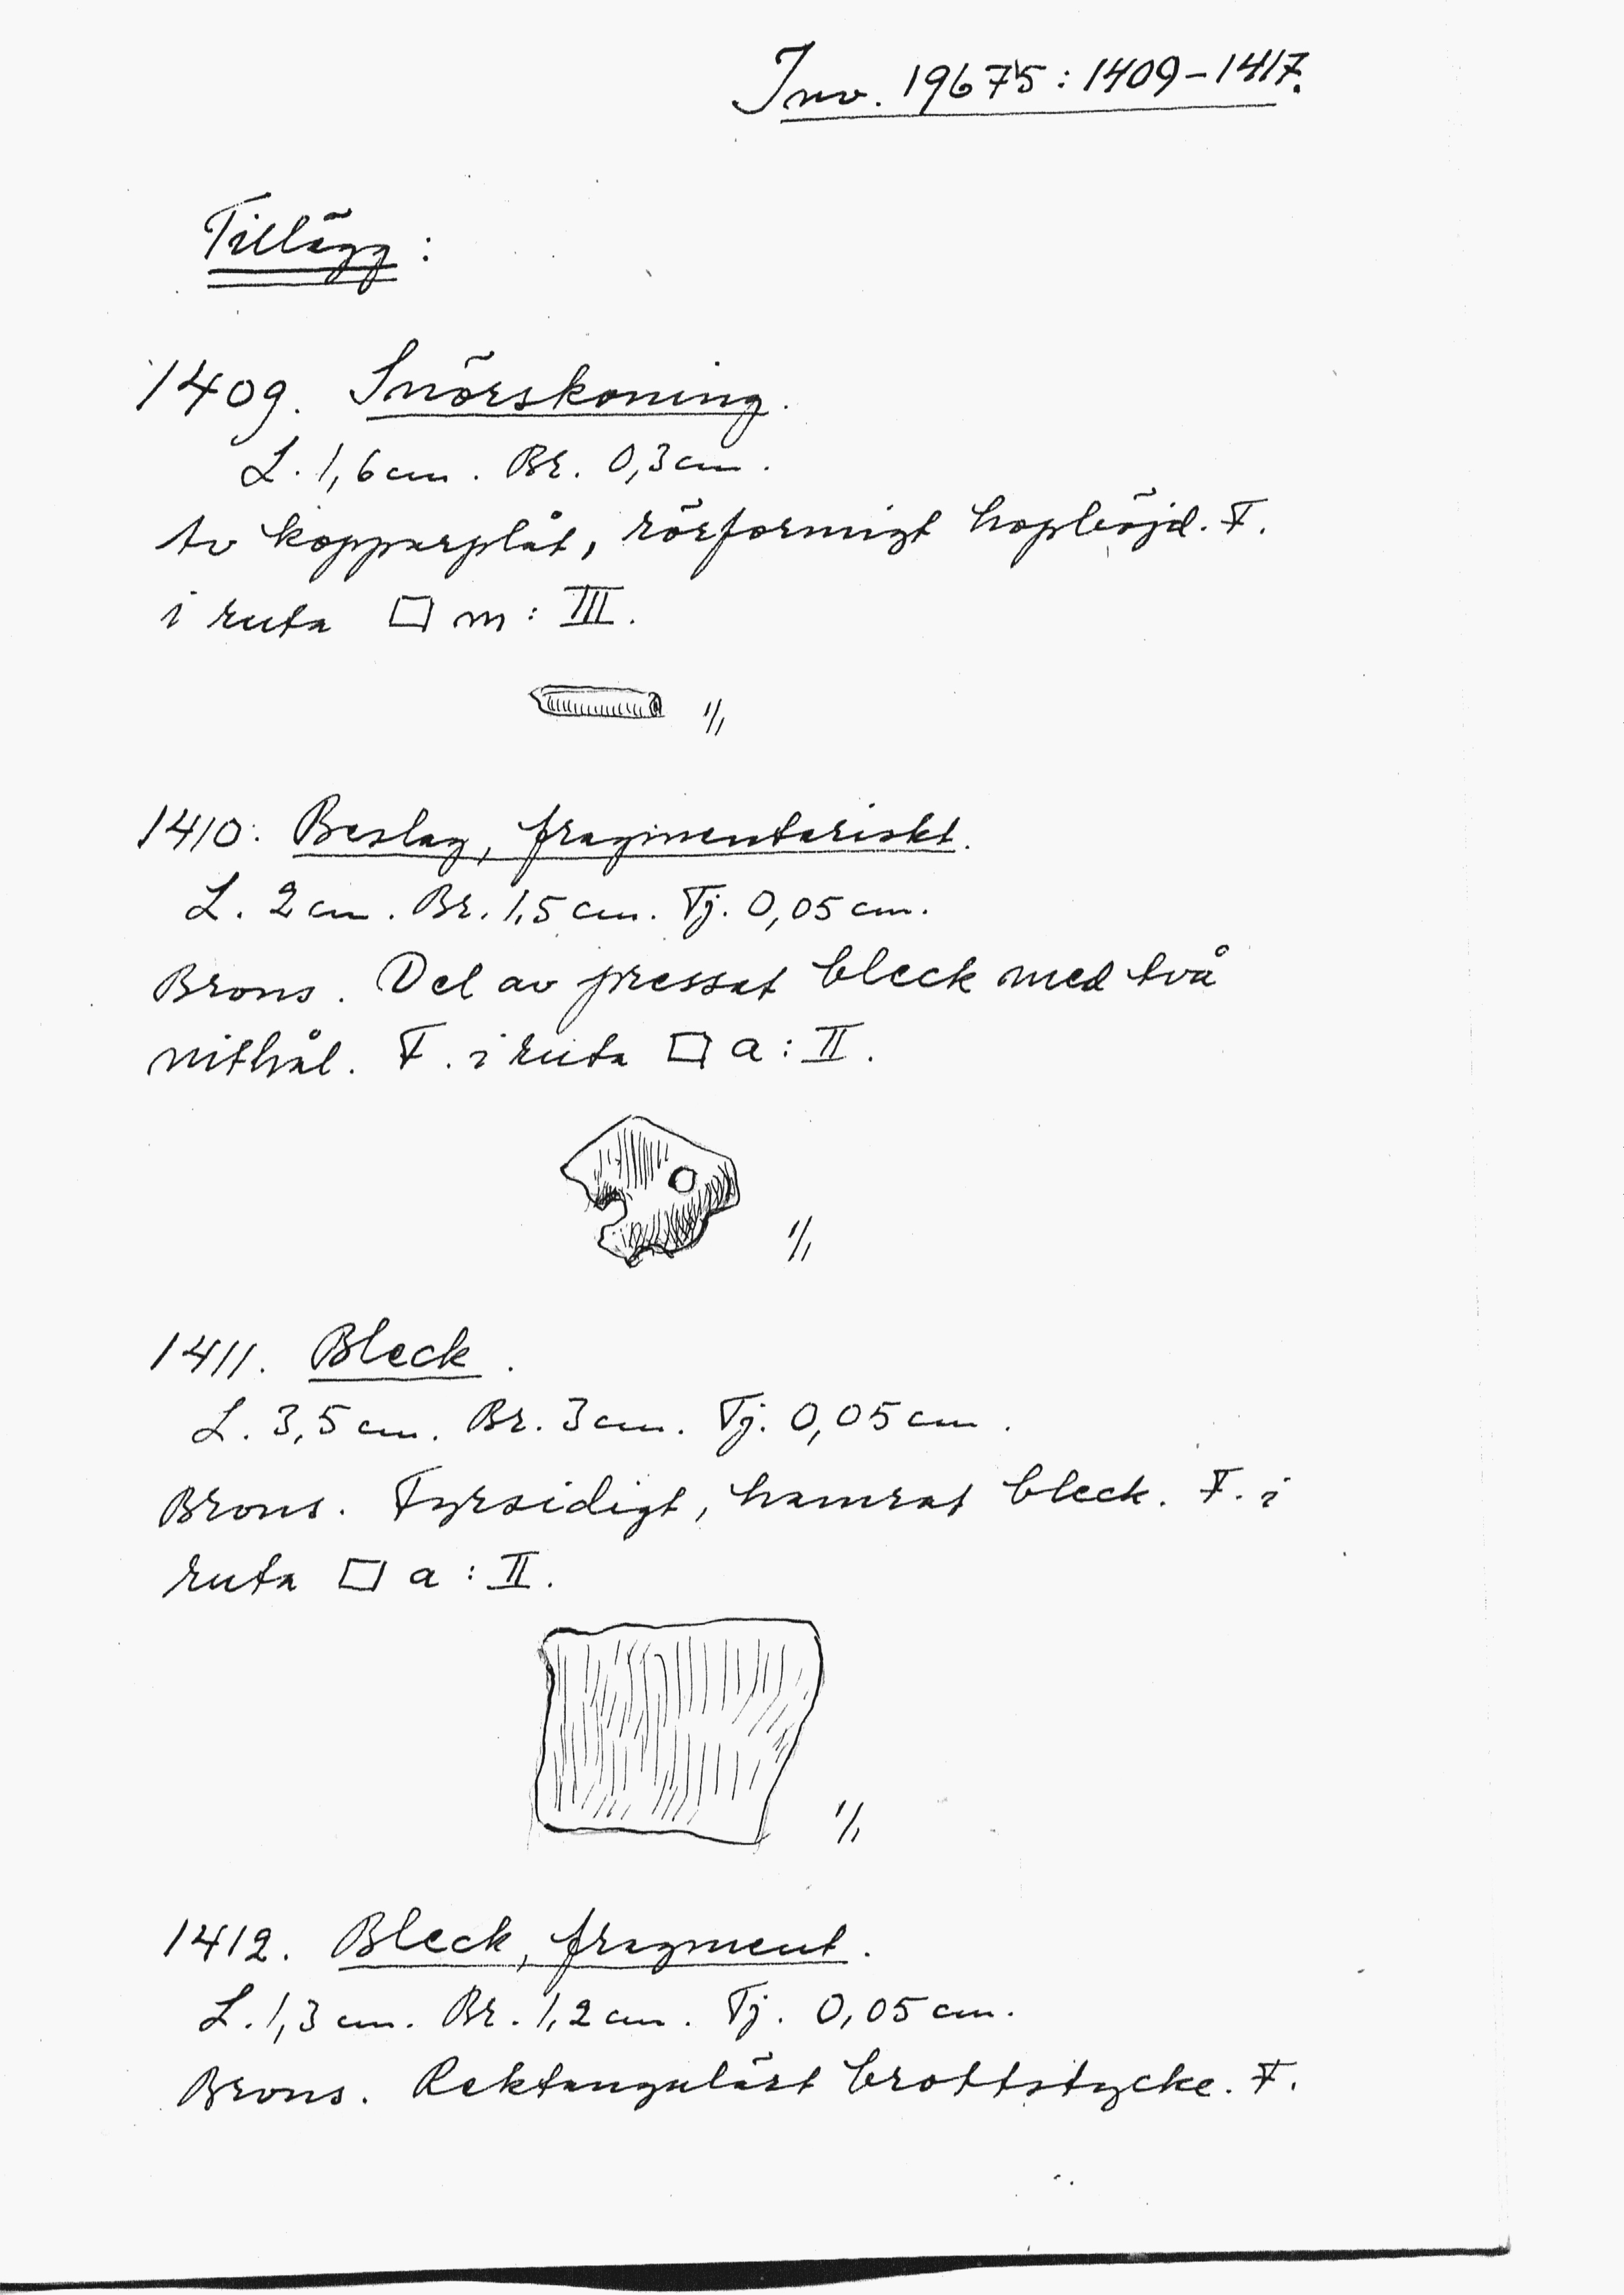 Inv. 19675:1409–1417.
Tillägg:
1409. Snörskoning.
L. 1,6 cm. Br. 0,3 cm.
Av kopparplåt, rörformigt hopböjd. F.
i ruta □ m: III.
1/1
1410. Beslag, fragmentariskt.
L. 2 cm. Br. 1,5 cm. Tj. 0,05 cm.
Brons. Del av pressat bleck med två
nithål. F. i ruta □ a: II.
1/1
1411. Bleck.
L. 3,5 cm. Br. 3 cm. Tj. 0,05 cm.
Brons. Fyrsidigt, hamrat bleck. F. i
ruta □ a: II.
1/1
1412. Bleck, fragment.
L. 1,3 cm. Br. 1,2 cm. Tj. 0,05 cm.
Brons. Rektangulärt brottstycke. F.